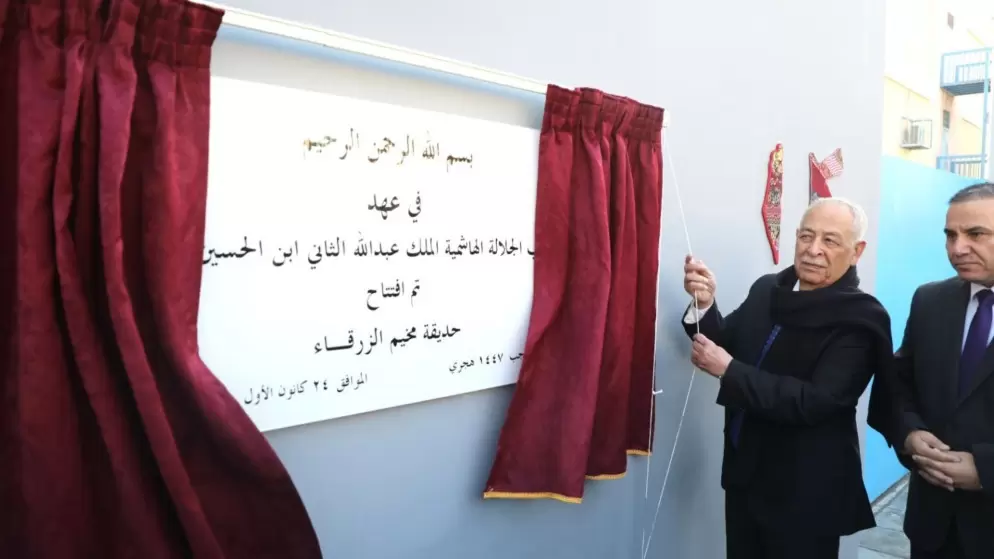 بسم الله الرحمن الرحيم
في عهد
الجلالة الهاشمية الملك عبدالله الثاني ابن الحسين
تم افتتاح
حديقة مخيم الزرقـــاء
١٤٤٧ هجري
الموافق ٢٤ كانون الأول